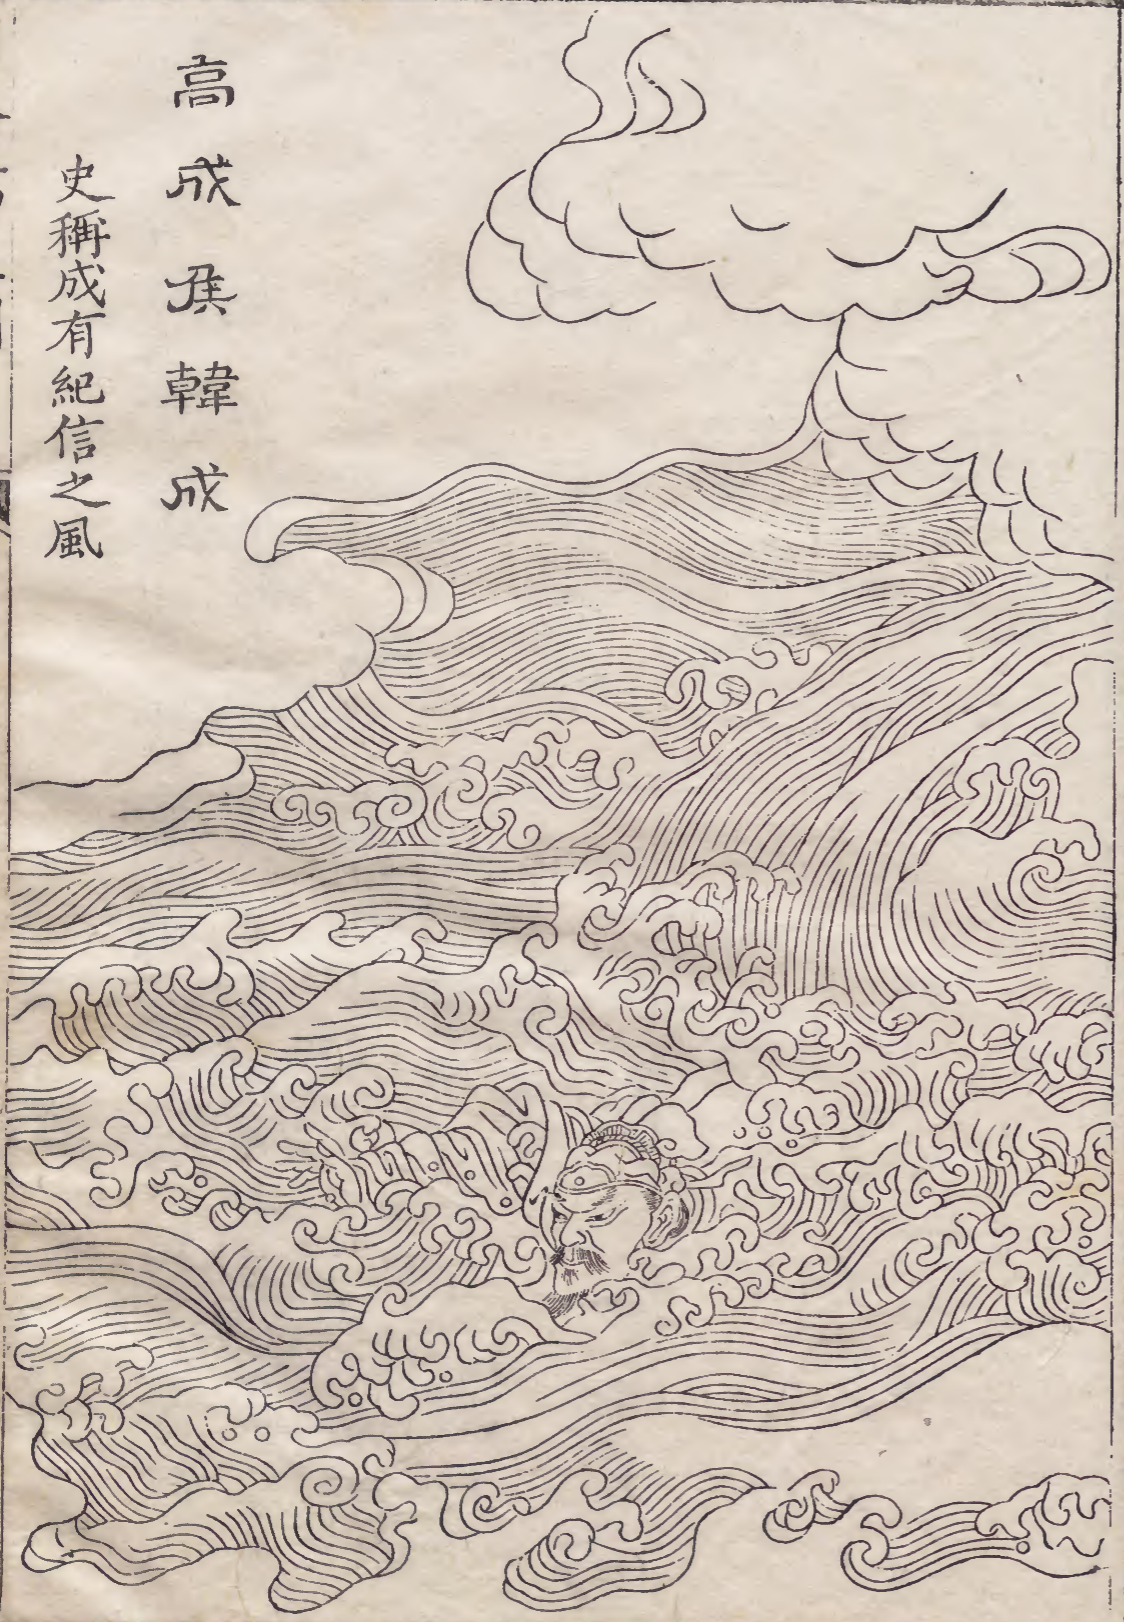 高成矦韓成
史稱成有紀信之風